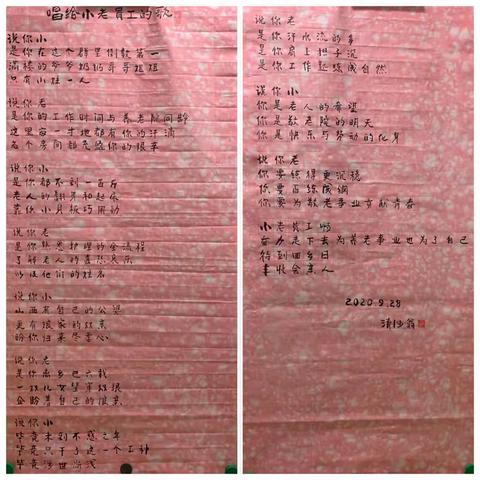 唱给小老员工的歌
说你小
是你在这个群里倒数第一
满楼的爷爷奶奶哥哥姐姐
只有小妞一人
说你老
是你的工作时间与养老院同龄
这里每一寸地都有你的汗滴
各个房间都充盈你的艰辛
说你小
是你都不到一百斤
老人的翻身和起居
靠你小身板巧用劲
说你老
是你熟悉护理的全流程
了解老人的喜怒哀乐
以及他们的姓名
说你小
山西有自己的公婆
更有很亲的双亲
盼你归来尽孝心
说你老
是你离乡已六载
一双儿女望军双眼
企盼着自己的娘亲
说你小
毕竟未到不惑之年
毕竟只干了这一个工种
毕竟涉世尚浅
说你老
是你汗水流的多
是你肩上担子沉
是你工作还练成自然
说你小
你是老人的希望
你是敬老院的明天
你是快乐与劳动的化身
说你老
你要练得更沉稳
你要百练成钢
你要为敬老事业贡献青春
小老员工哟
奋力走下去为养老事业也为了自己
待到回乡日
丰收会亲人
2020.9.28